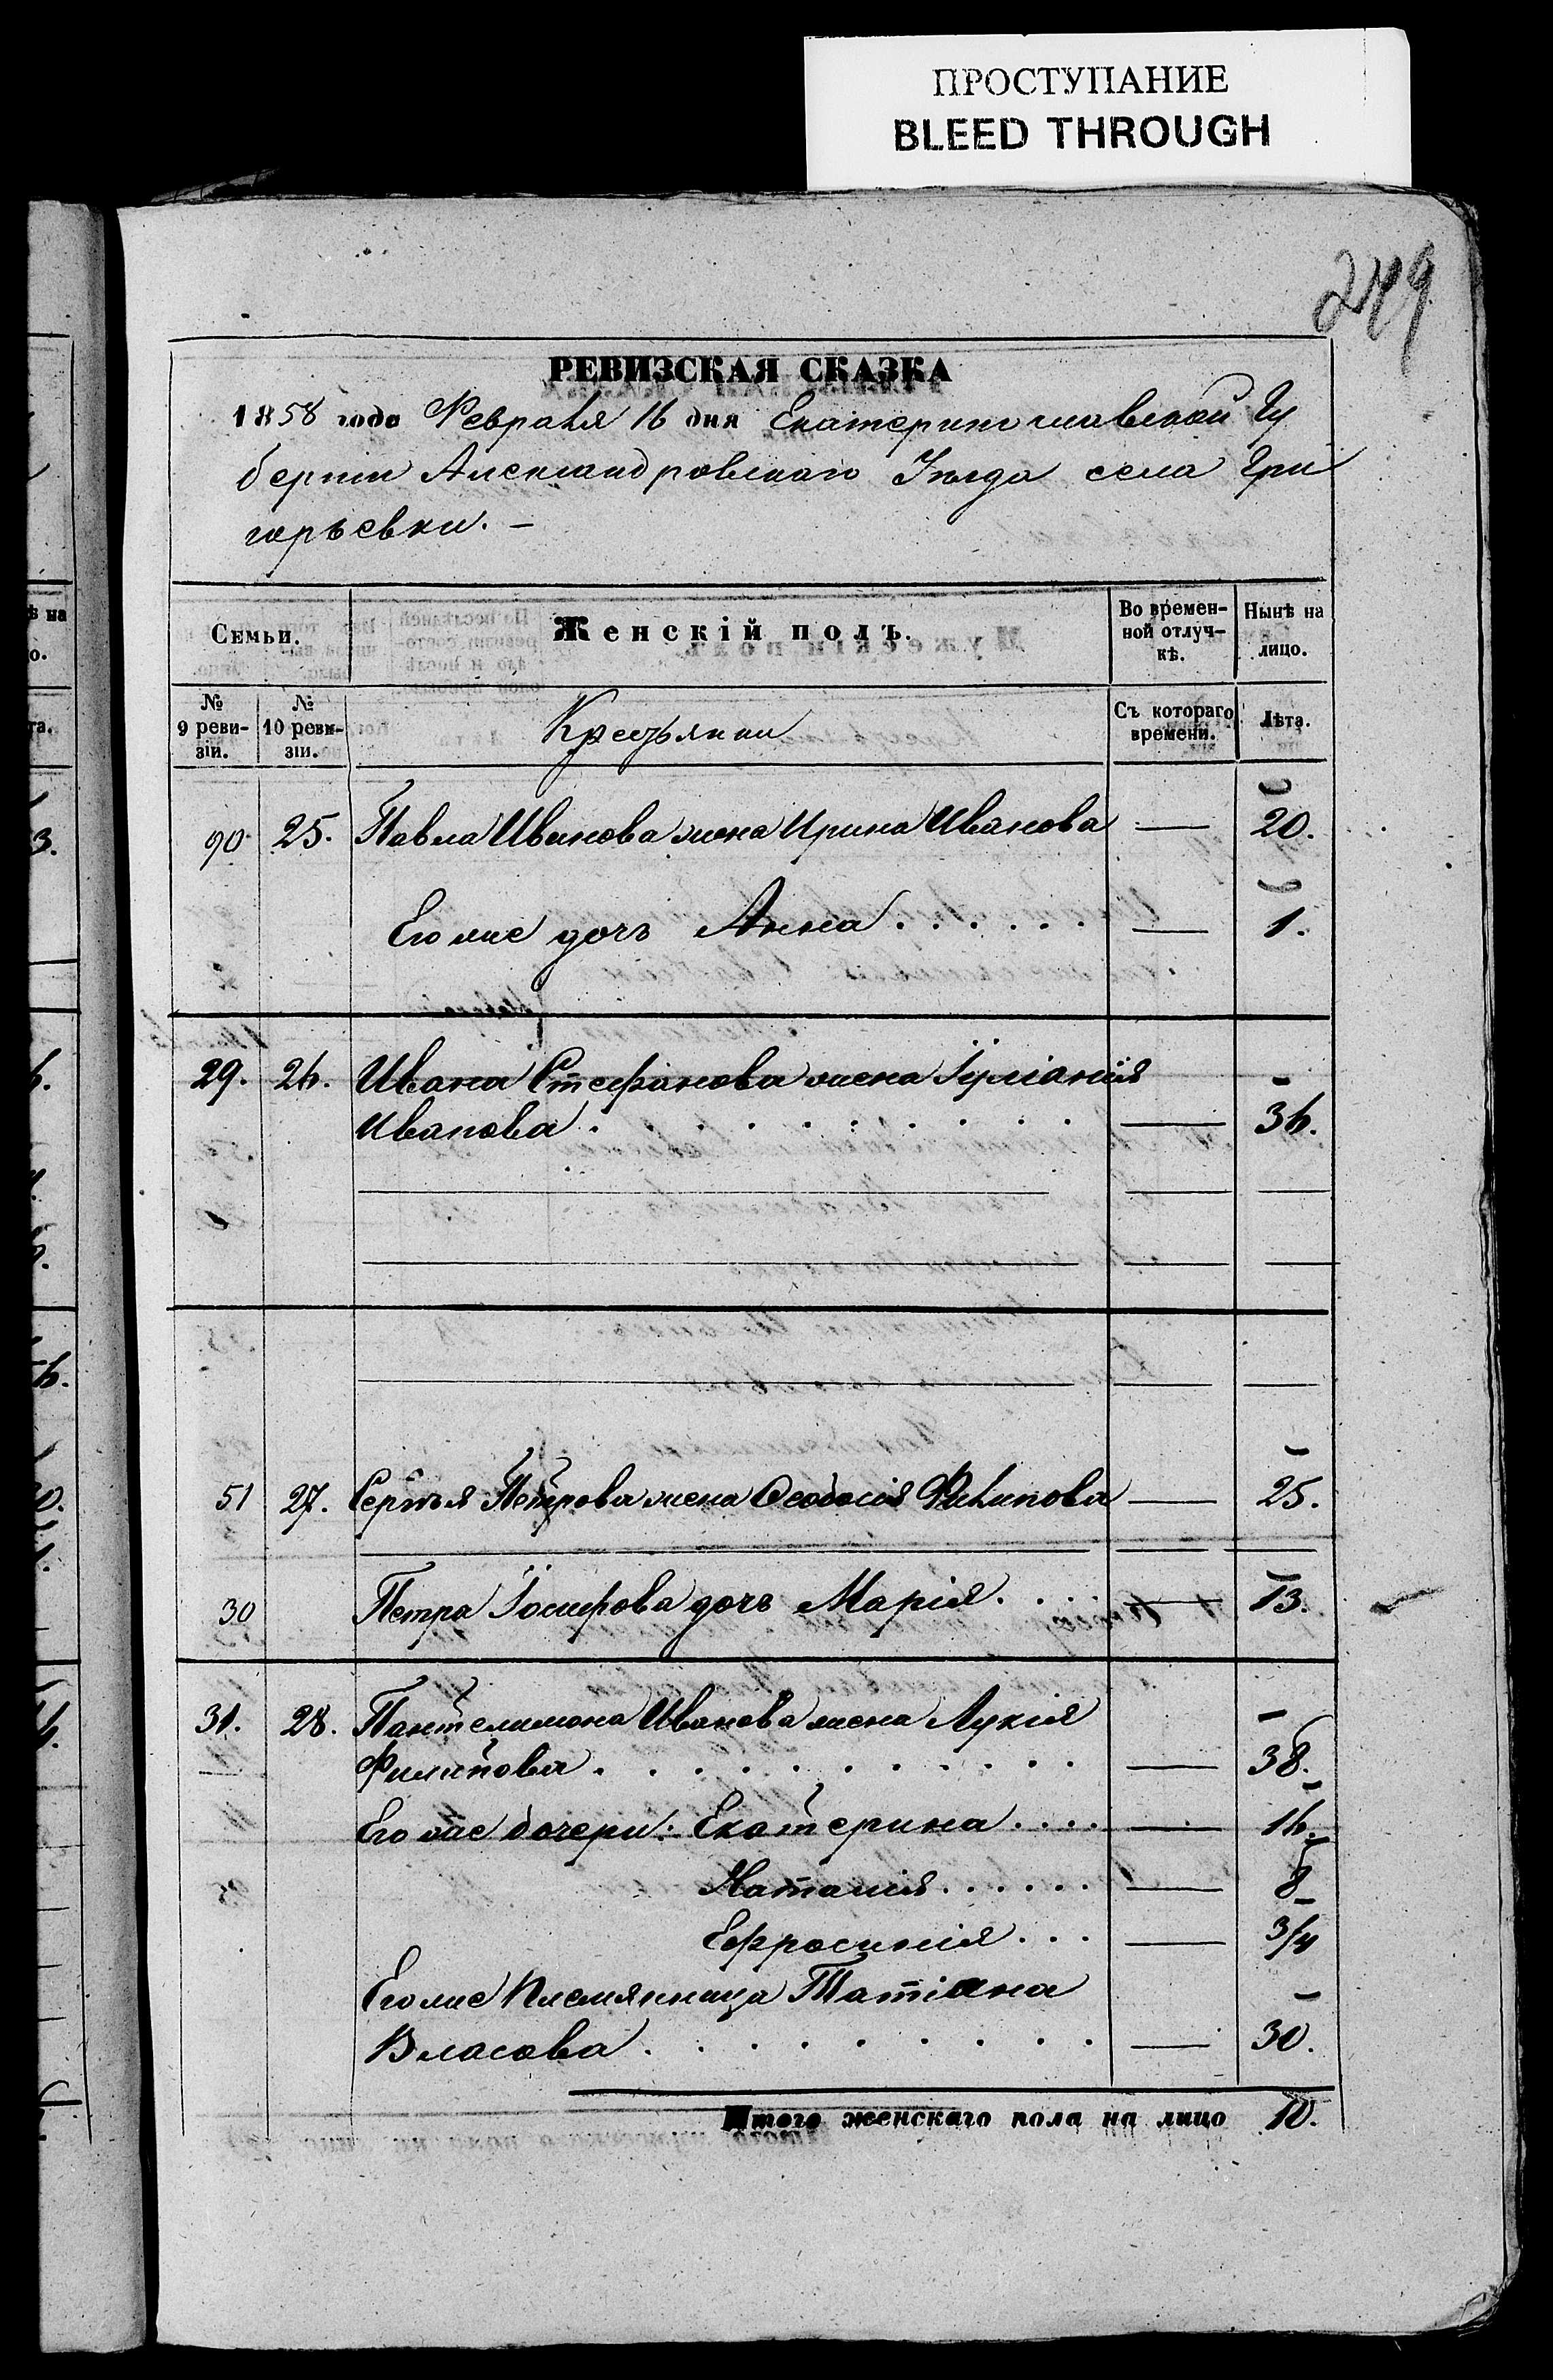 ПРОСТУПАНИЕ
BLEED THROUGH
249
РЕВИЗСКАЯ СКАЗКА
1858 года Февраля 16 дня Екатеринославской Гу
берніи Александровскаго Уѣзда села Гри
горьевки. –
Семьи.
Женскій полъ.
Во времен-
ной отлуч-
кѣ.
Нынѣ на
лицо.
№
9 реви-
зіи.
№
10 реви-
зіи.
Крестьянки
Съ котораго
времени.
Лѣта.
90 25. Павла Иванова жена Ирина Иванова — 20.
Его же дочь Анна . . . . . . — 1.
29. 26. Ивана Стефанова жена Іуліанія
Иванова . . . . . . . . . . — 36.
51 27. Сергѣя Петрова жена Ѳеодосія Филипова — 25.
30 Петра Іосифова дочь Марія . . . — 13.
31. 28. Пантелимона Иванова жена Лукія
Филипова . . . . . . . . . . — 38.
Его же дочери: Екатерина . . . . — 16.
Наталія . . . . . . — 8
Ефросинія . . . — 3/4
Его же Племянница Татіана
Власова . . . . . . . . . — 30.
Итого женскаго пола на лицо 10.